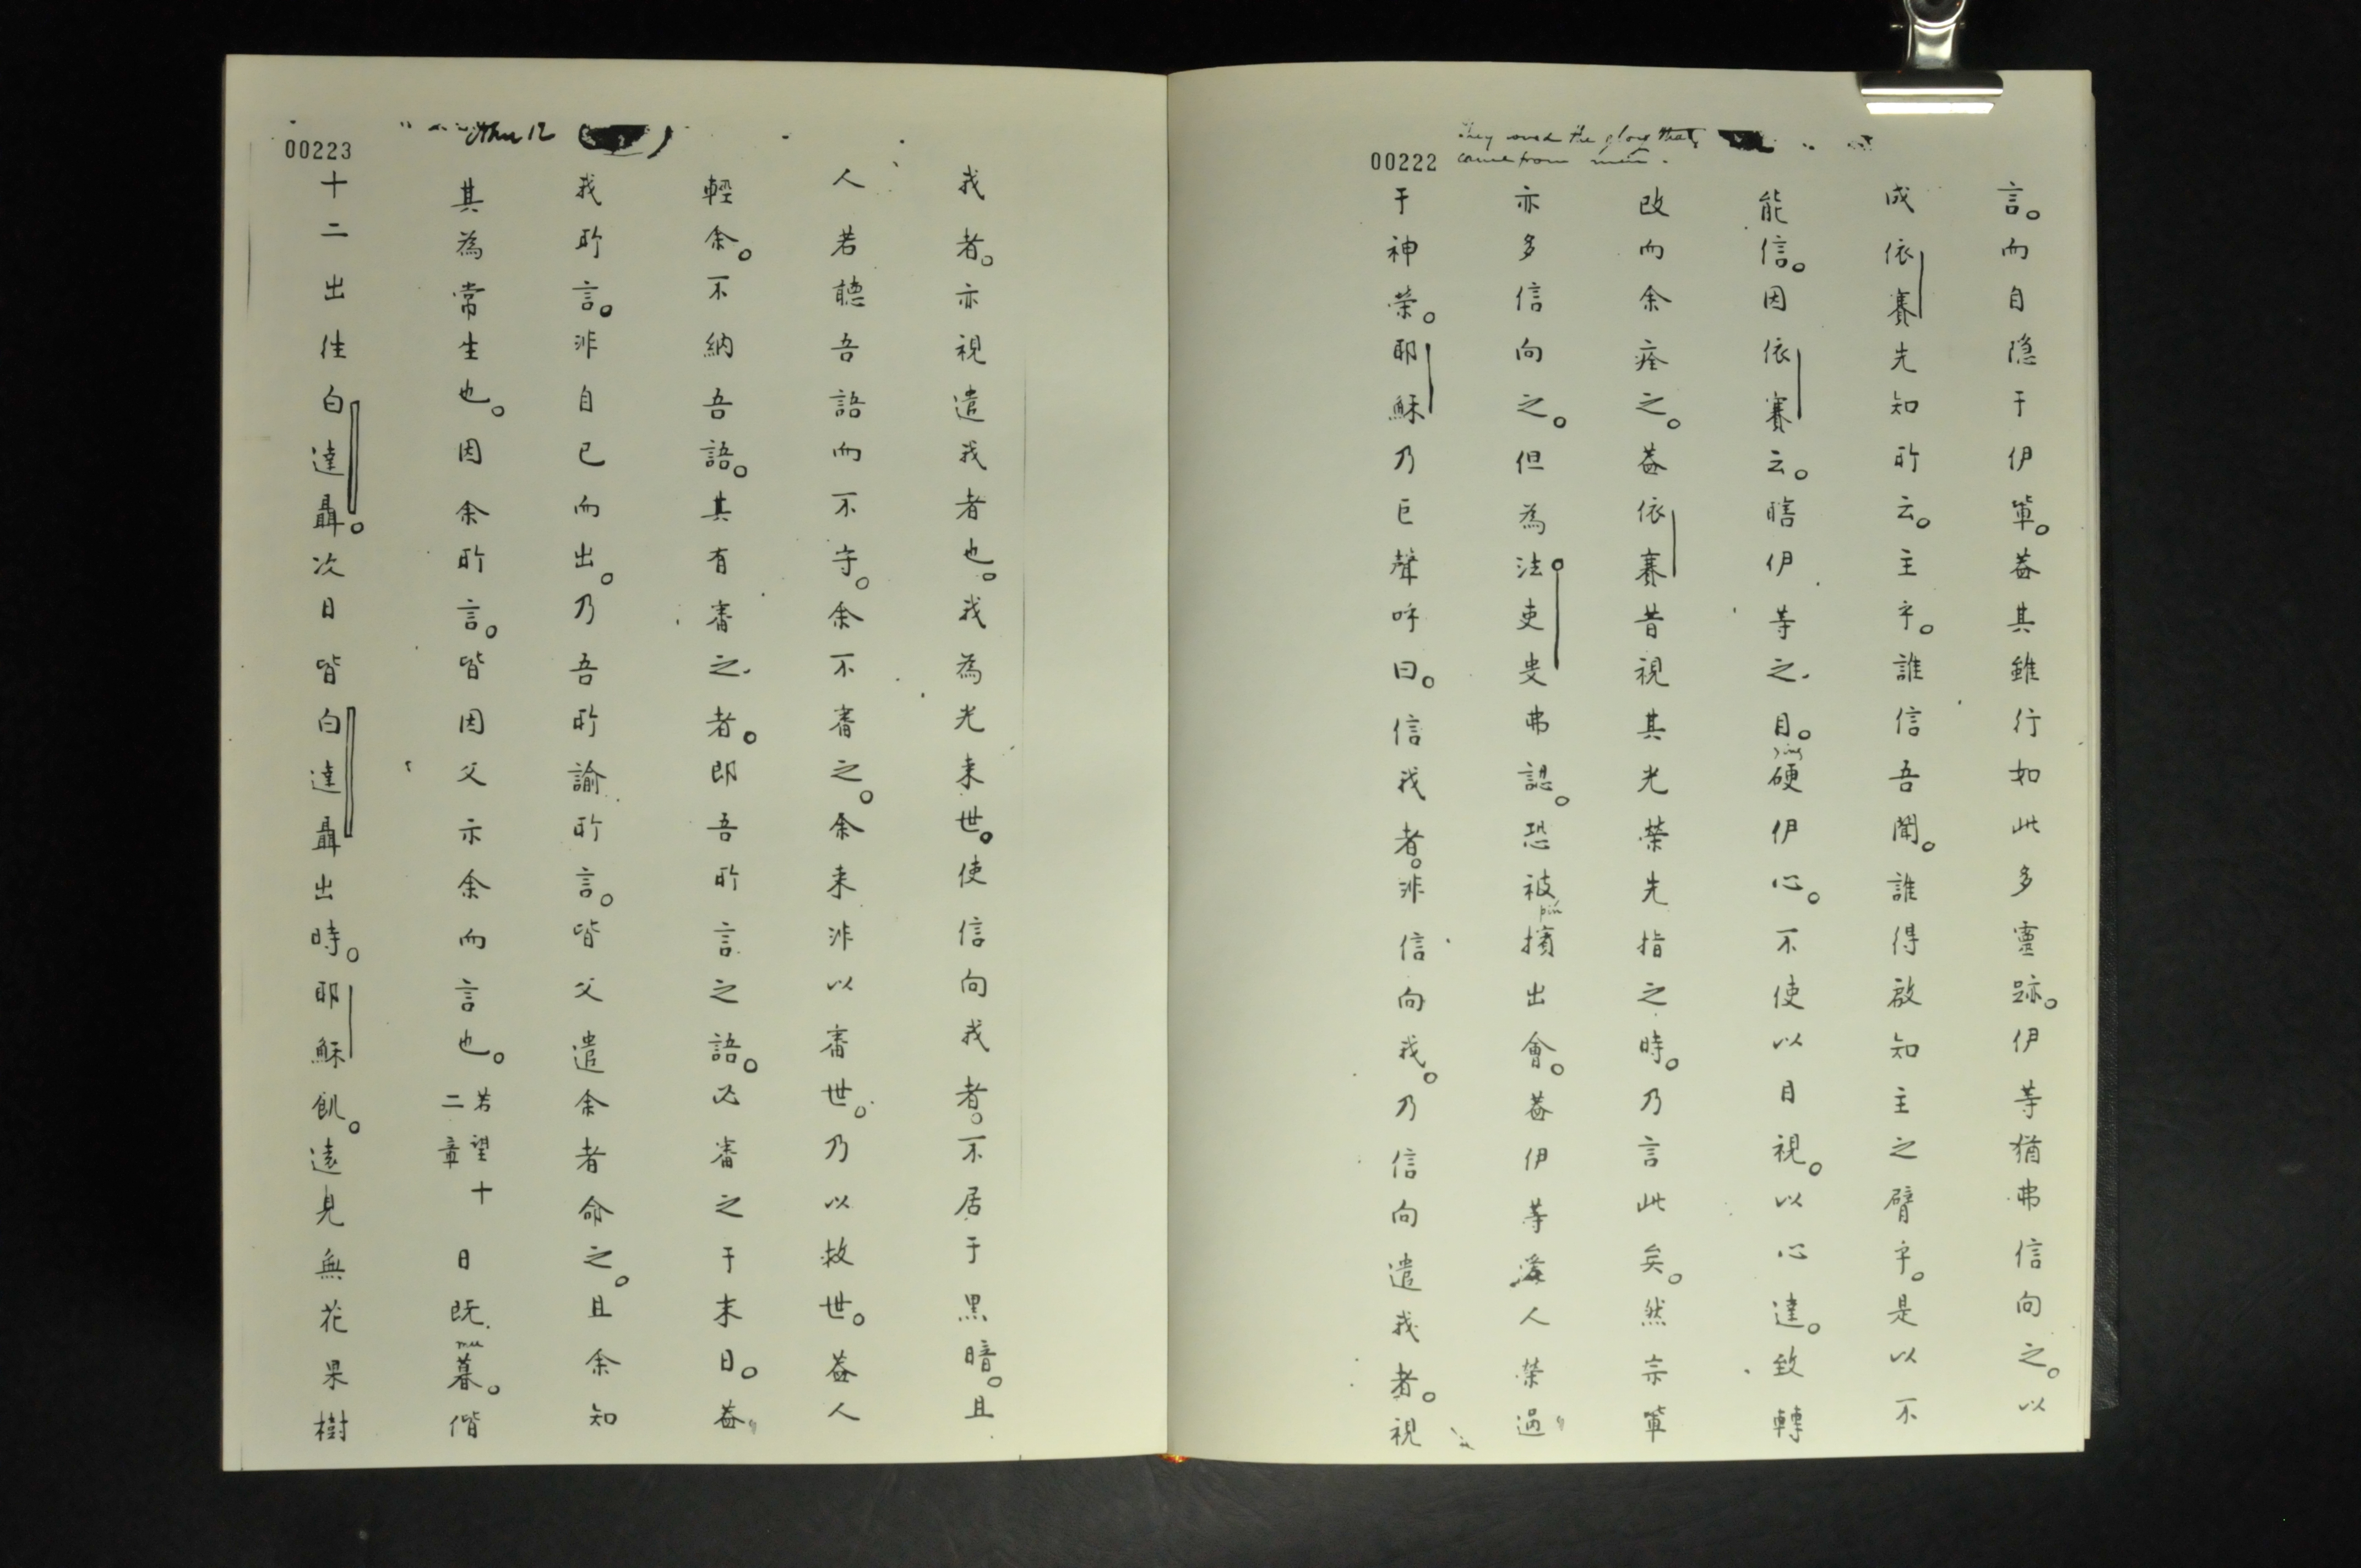 They loved the glory that
came from men.
00222
言。而自隐于伊軰。葢其雖行如此多靈跡。伊等猶弗信向之。以
成依賽先知所云。主乎。誰信吾聞。誰得啟知主之臂乎。是以不
能信。因依賽云。瞎伊等之目。硬伊心。不使以目視。以心達。致轉
改而余痊之。葢依賽昔視其光榮先指之時。乃言此矣。然宗軰
亦多信向之。但為法吏叟弗認。恐被擯出會。葢伊等愛人榮過
于神榮。耶穌乃巨聲呼曰。信我者。非信向我。乃信向遣我者。視
John 12
00223
我者。亦視遣我者也。我為光来世。使信向我者。不居于黑暗。且
人若聽吾語而不守。余不審之。余来非以審世。乃以救世。葢人
輕余。不納吾語。其有審之者。即吾所言之語。必審之于末日。葢
我所言。非自已而出。乃吾所諭所言。皆父遣余者命之。且余知
其為常生也。因余所言。皆因父示余而言也。若望十二章 日既暮。偕
十二出往白達聶。次日皆白達聶出時。耶穌飢。遠見無花果樹